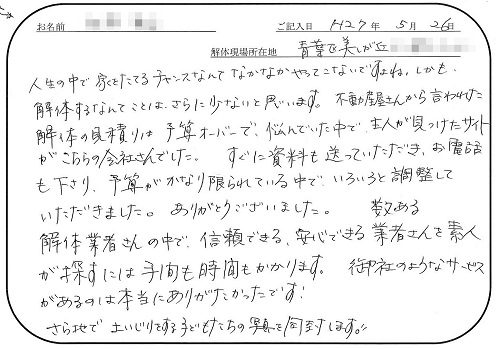 お名前 ご記入日 H27年 5月 26日
解体現場所在地 青葉区美しが丘
人生の中で家をたてるチャンスなんてなかなかやってこないですよね。しかも、
解体するなんてことは、さらに少ないと思います。 不動産屋さんから言われた
解体の見積りは予算オーバーで、悩んでいた中で、主人が見つけたサイト
がこちらの会社さんでした。 すぐに資料も送っていただき、お電話
も下さり、予算がかなり限られている中で、いろいろと調整して
いただきました。ありがとうございました。 数ある
解体業者さんの中で、信頼できる、安心できる業者さんを素人
が探すには手間も時間もかかります。 御社のようなサービス
があるのは本当にありがたかったです!
さら地で土いじりをする子どもたちの写真を同封します。